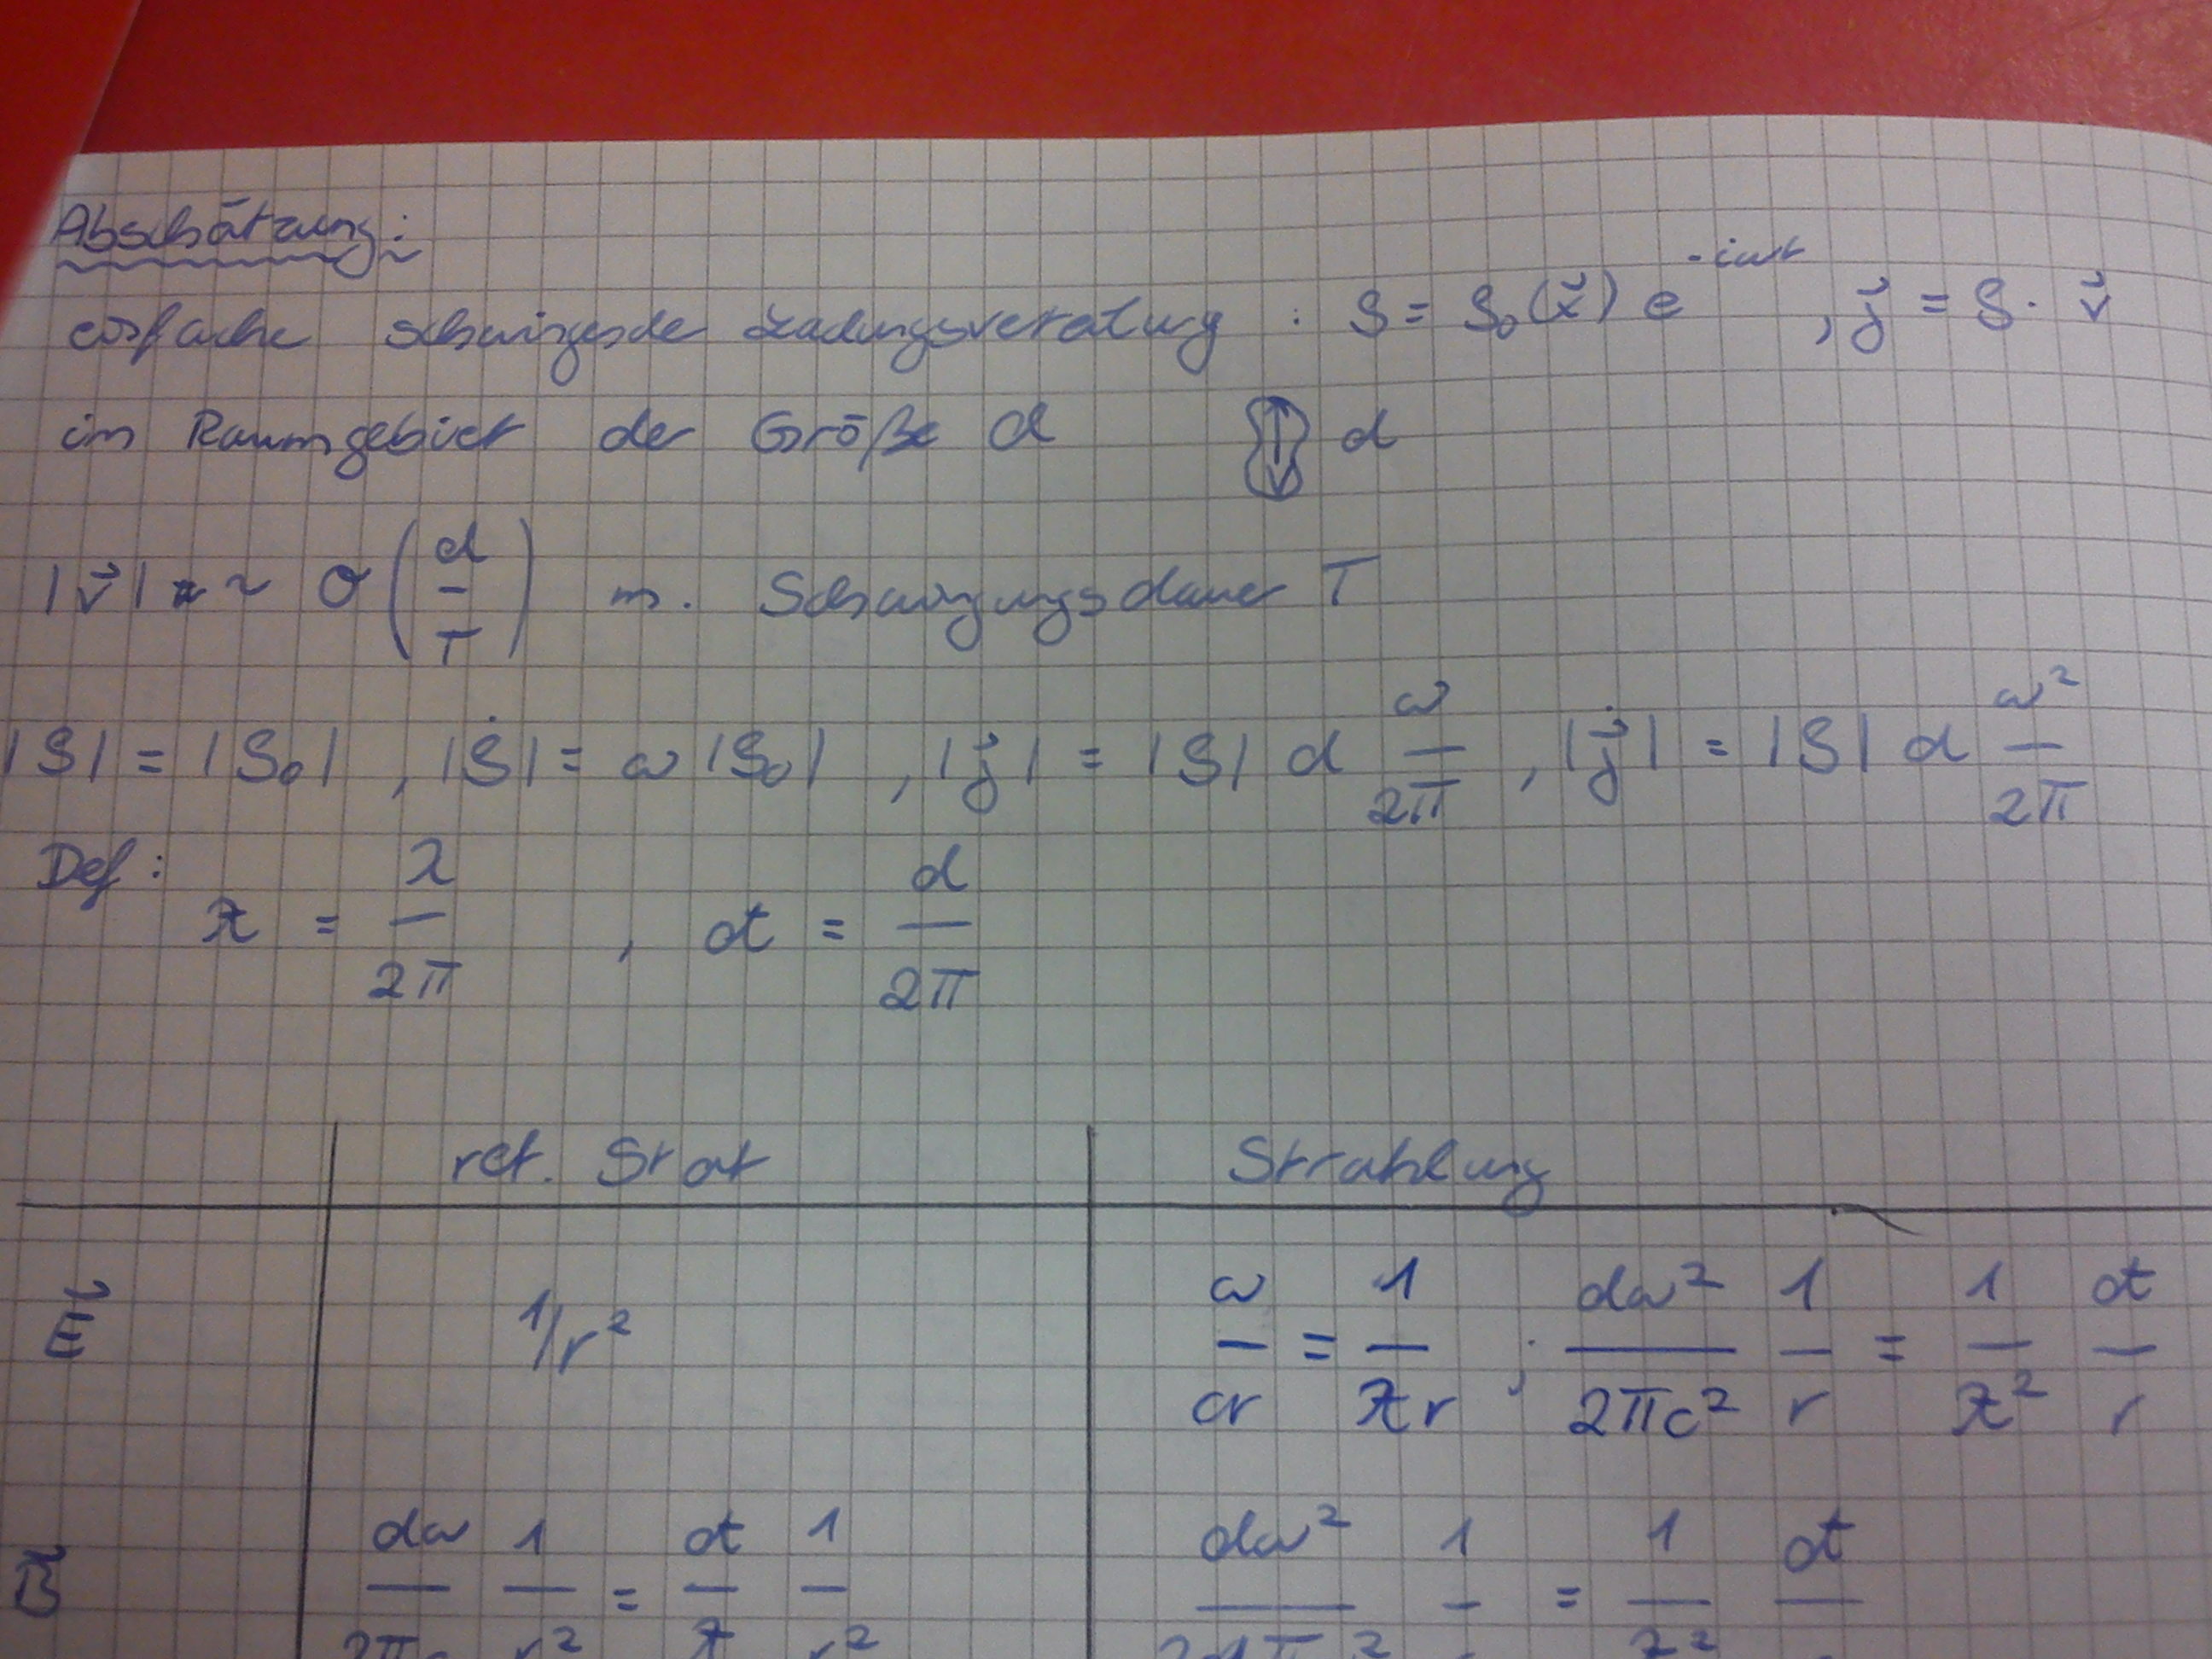 Abschätzung:
einfache schwingende Ladungsverteilung : ρ = ρ₀(x⃗) e^{-iωt} , j⃗ = ρ · v⃗
im Raumgebiet der Größe d d
|v⃗| ~ O(d/T) m. Schwingungsdauer T
|ρ| = |ρ₀| , |ρ̇| = ω|ρ₀| , |j⃗| = |ρ| d ω/2π , |j⃗̇| = |ρ| d ω²/2π
Def: ƛ = λ/2π , đ = d/2π
ret. Stat Strahlung
E⃗ 1/r² ω/cr = 1/ƛr ; dω²/2πc² 1/r = 1/ƛ² đ/r
B⃗ dω/2πc 1/r² = đ/ƛ 1/r² dω² 1 = 1/ƛ² đ